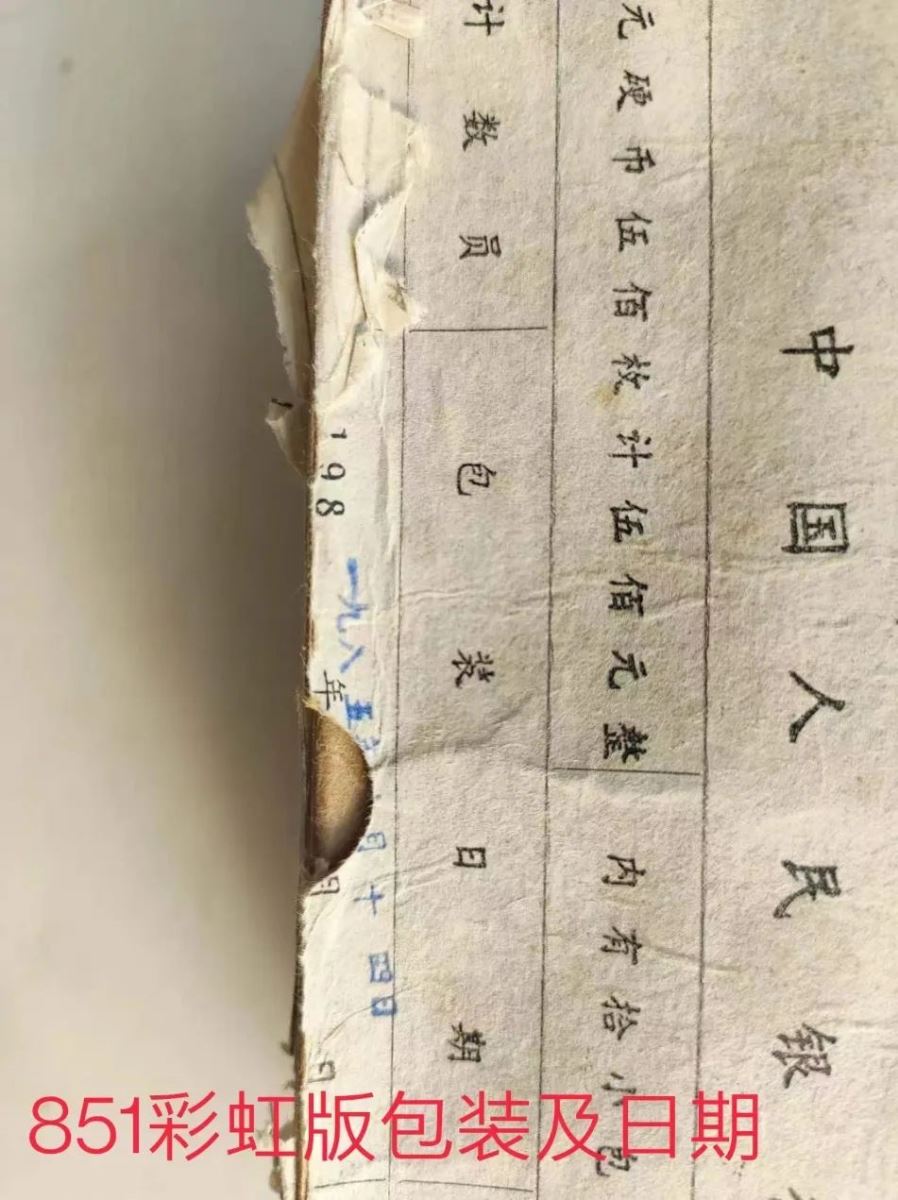 中国人民银
元硬币伍佰枚计伍佰元整 内有拾小包
计数员 包装日期
198 年 月 日
一九八五年 月十四日
851彩虹版包装及日期